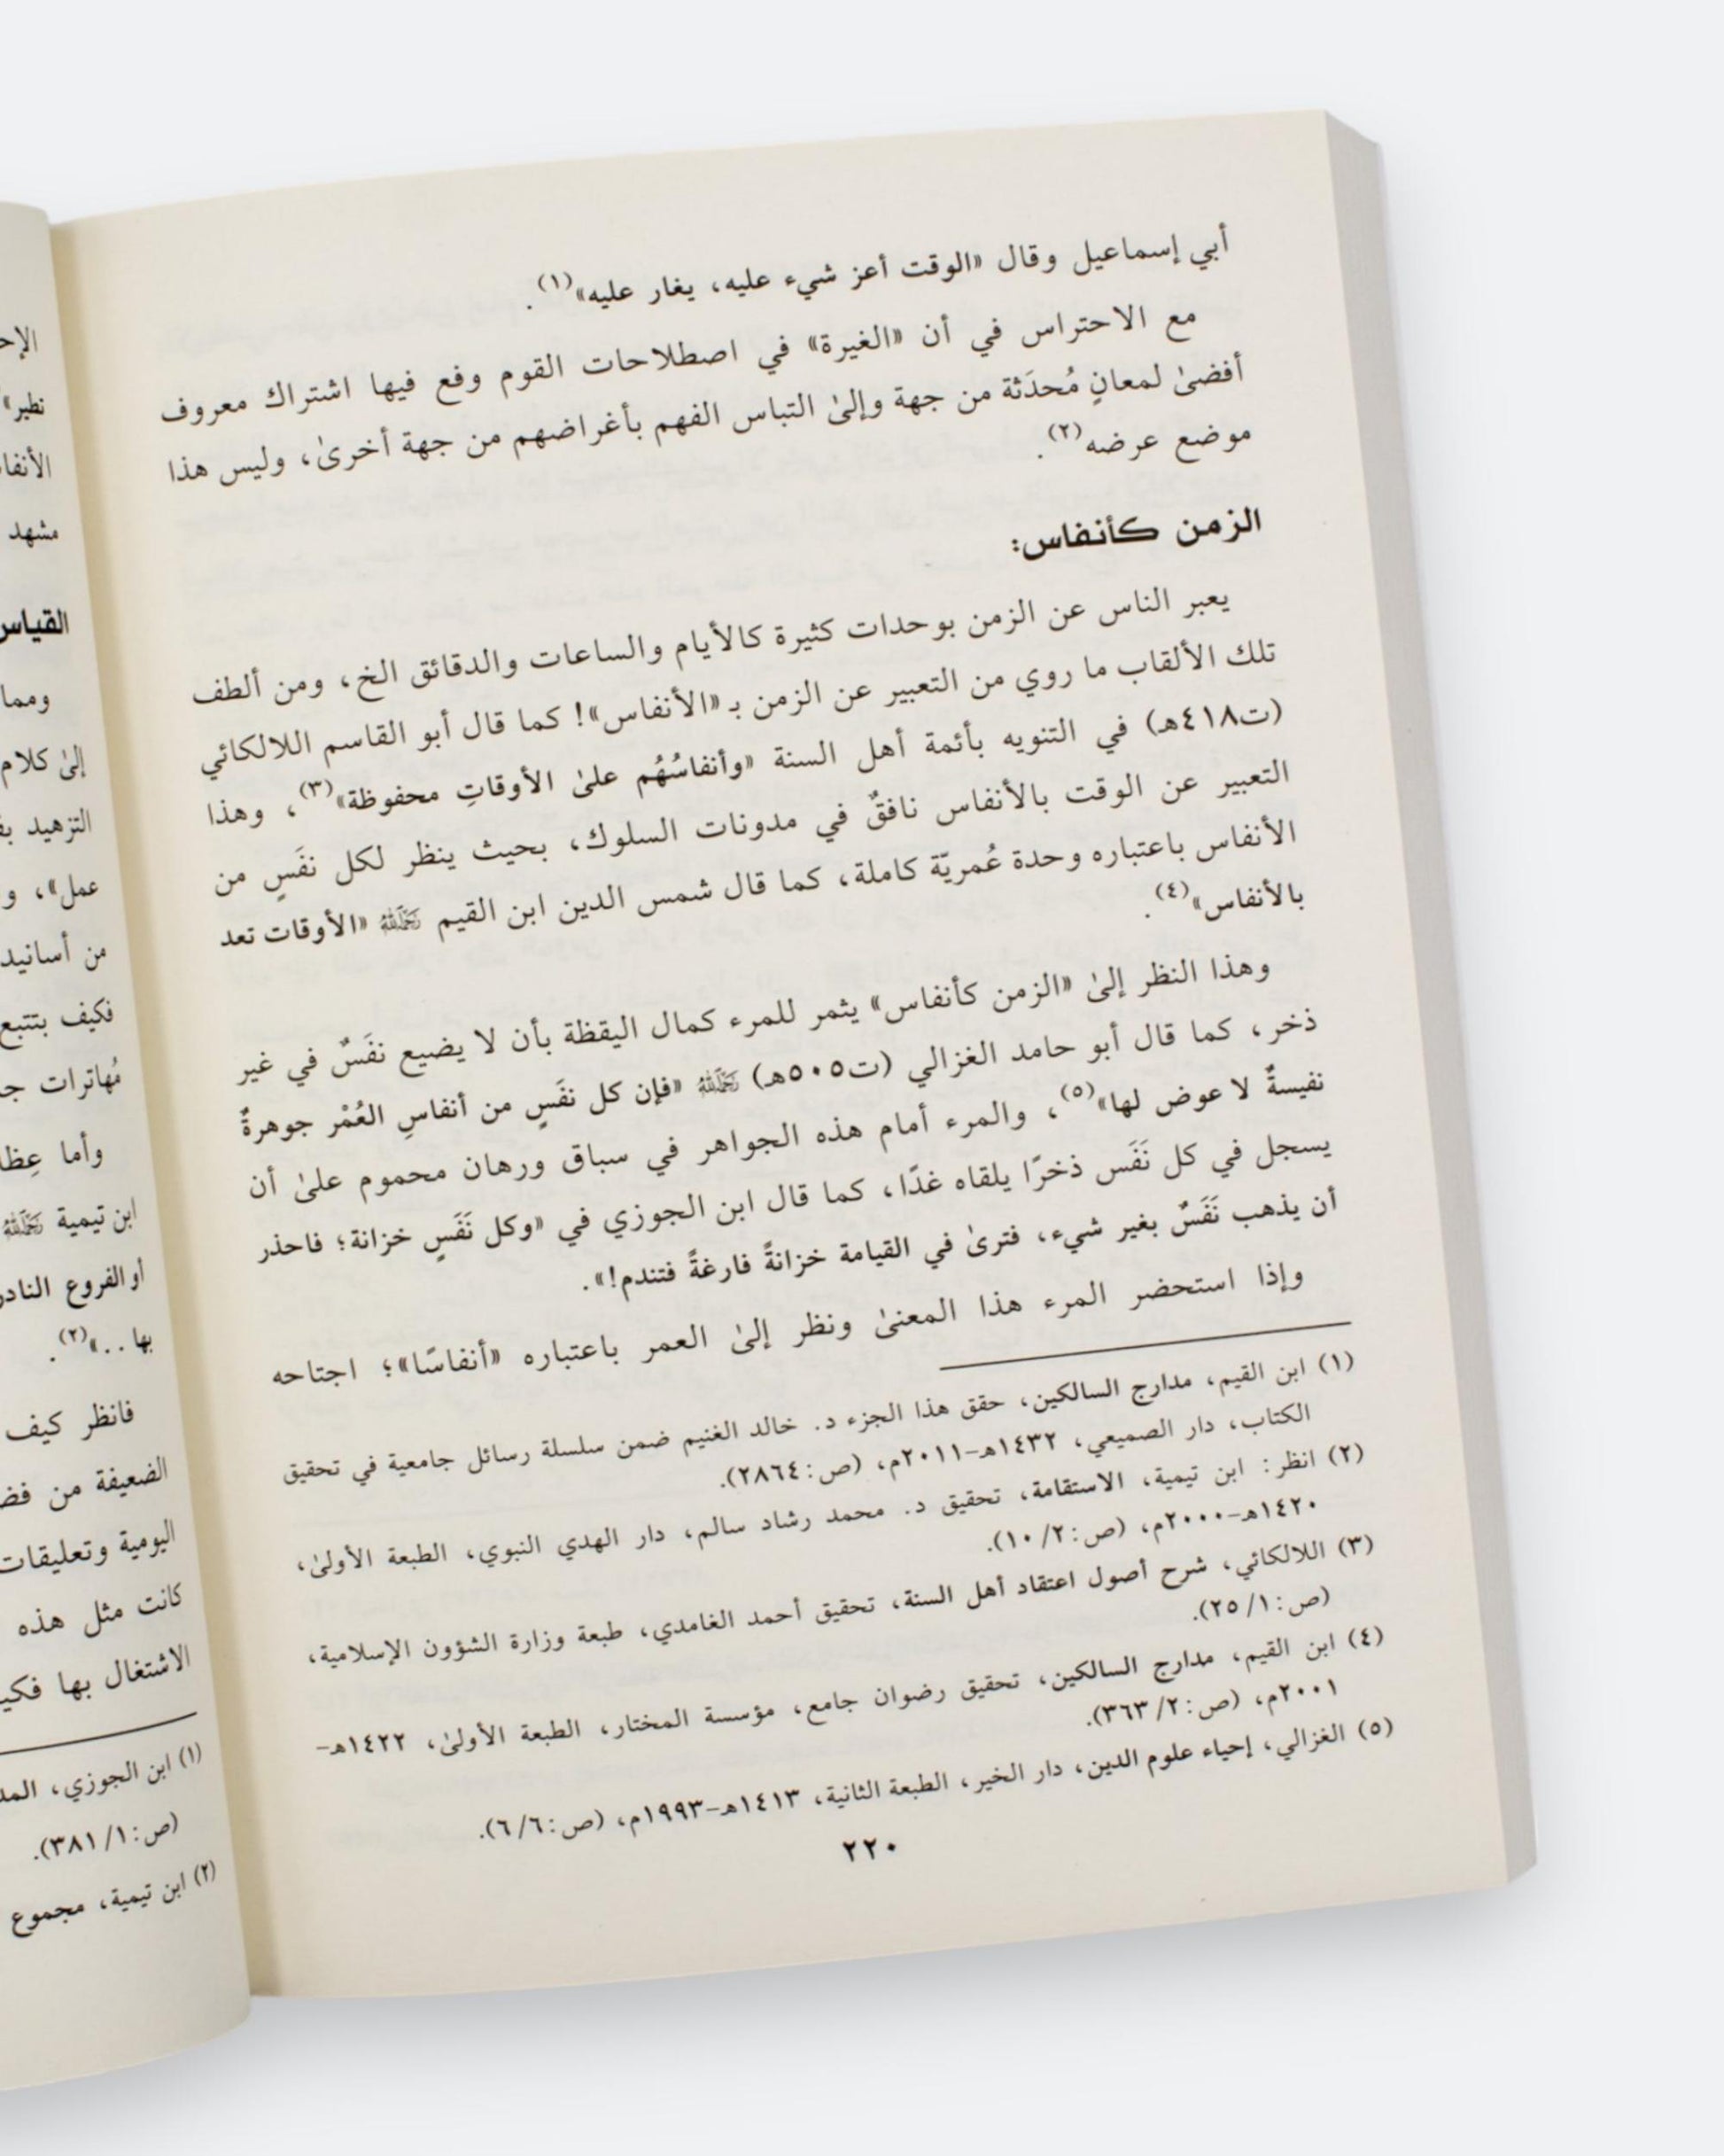 أبي إسماعيل وقال «الوقت أعز شيء عليه، يغار عليه»(١).
مع الاحتراس في أن «الغيرة» في اصطلاحات القوم وفع فيها اشتراك معروف
أفضىٰ لمعانٍ مُحدَثة من جهة وإلىٰ التباس الفهم بأغراضهم من جهة أخرىٰ، وليس هذا
موضع عرضه(٢).
الزمن كأنفاس:
يعبر الناس عن الزمن بوحدات كثيرة كالأيام والساعات والدقائق الخ، ومن ألطف
تلك الألقاب ما روي من التعبير عن الزمن بـ «الأنفاس»! كما قال أبو القاسم اللالكائي
(ت٤١٨هـ) في التنويه بأئمة أهل السنة «وأنفاسُهُم علىٰ الأوقاتِ محفوظة»(٣)، وهذا
التعبير عن الوقت بالأنفاس نافقٌ في مدونات السلوك، بحيث ينظر لكل نفَسٍ من
الأنفاس باعتباره وحدة عُمريّة كاملة، كما قال شمس الدين ابن القيم رَحِمَهُ اللهُ «الأوقات تعد
بالأنفاس»(٤).
وهذا النظر إلىٰ «الزمن كأنفاس» يثمر للمرء كمال اليقظة بأن لا يضيع نفَسٌ في غير
ذخر، كما قال أبو حامد الغزالي (ت٥٠٥هـ) رَحِمَهُ اللهُ «فإن كل نفَسٍ من أنفاسِ العُمْر جوهرةٌ
نفيسةٌ لا عوض لها»(٥)، والمرء أمام هذه الجواهر في سباق ورهان محموم علىٰ أن
يسجل في كل نَفَس ذخرًا يلقاه غدًا، كما قال ابن الجوزي في «وكل نَفَسٍ خزانة؛ فاحذر
أن يذهب نَفَسٌ بغير شيء، فترىٰ في القيامة خزانةً فارغةً فتندم!».
وإذا استحضر المرء هذا المعنىٰ ونظر إلىٰ العمر باعتباره «أنفاسًا»؛ اجتاحه
(١) ابن القيم، مدارج السالكين، حقق هذا الجزء د. خالد الغنيم ضمن سلسلة رسائل جامعية في تحقيق
الكتاب، دار الصميعي، ١٤٣٢هـ-٢٠١١م، (ص:٢٨٦٤).
(٢) انظر: ابن تيمية، الاستقامة، تحقيق د. محمد رشاد سالم، دار الهدي النبوي، الطبعة الأولىٰ،
١٤٢٠هـ-٢٠٠٠م، (ص:٢/ ١٠).
(٣) اللالكائي، شرح أصول اعتقاد أهل السنة، تحقيق أحمد الغامدي، طبعة وزارة الشؤون الإسلامية،
(ص:١/ ٢٥).
(٤) ابن القيم، مدارج السالكين، تحقيق رضوان جامع، مؤسسة المختار، الطبعة الأولىٰ، ١٤٢٢هـ-
٢٠٠١م، (ص:٢/ ٣٦٣).
(٥) الغزالي، إحياء علوم الدين، دار الخير، الطبعة الثانية، ١٤١٣هـ-١٩٩٣م، (ص:٦/ ٦).
٢٢٠
نظير»
مشهد
ومما
إلىٰ كلام
التزهيد
عمل»، و
من أسانيد
فكيف بتتبع
مُهاترات
وأما
ابن تيمية رَحِمَهُ اللهُ
أو الفروع
بها ..»(٢).
فانظر كيف
الضعيفة من
اليومية وتعليقات
كانت مثل هذه
الاشتغال بها
(١) ابن الجوزي،
(ص:١/ ٣٨١).
(٢) ابن تيمية، مجموع